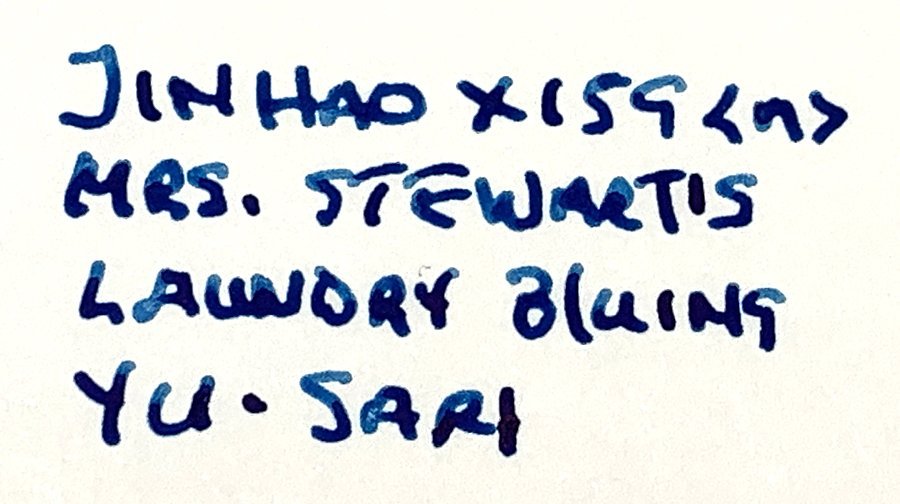 JINHAO X159 <m>
MRS. STEWART'S
LAUNDRY BlUING
YU•SARI